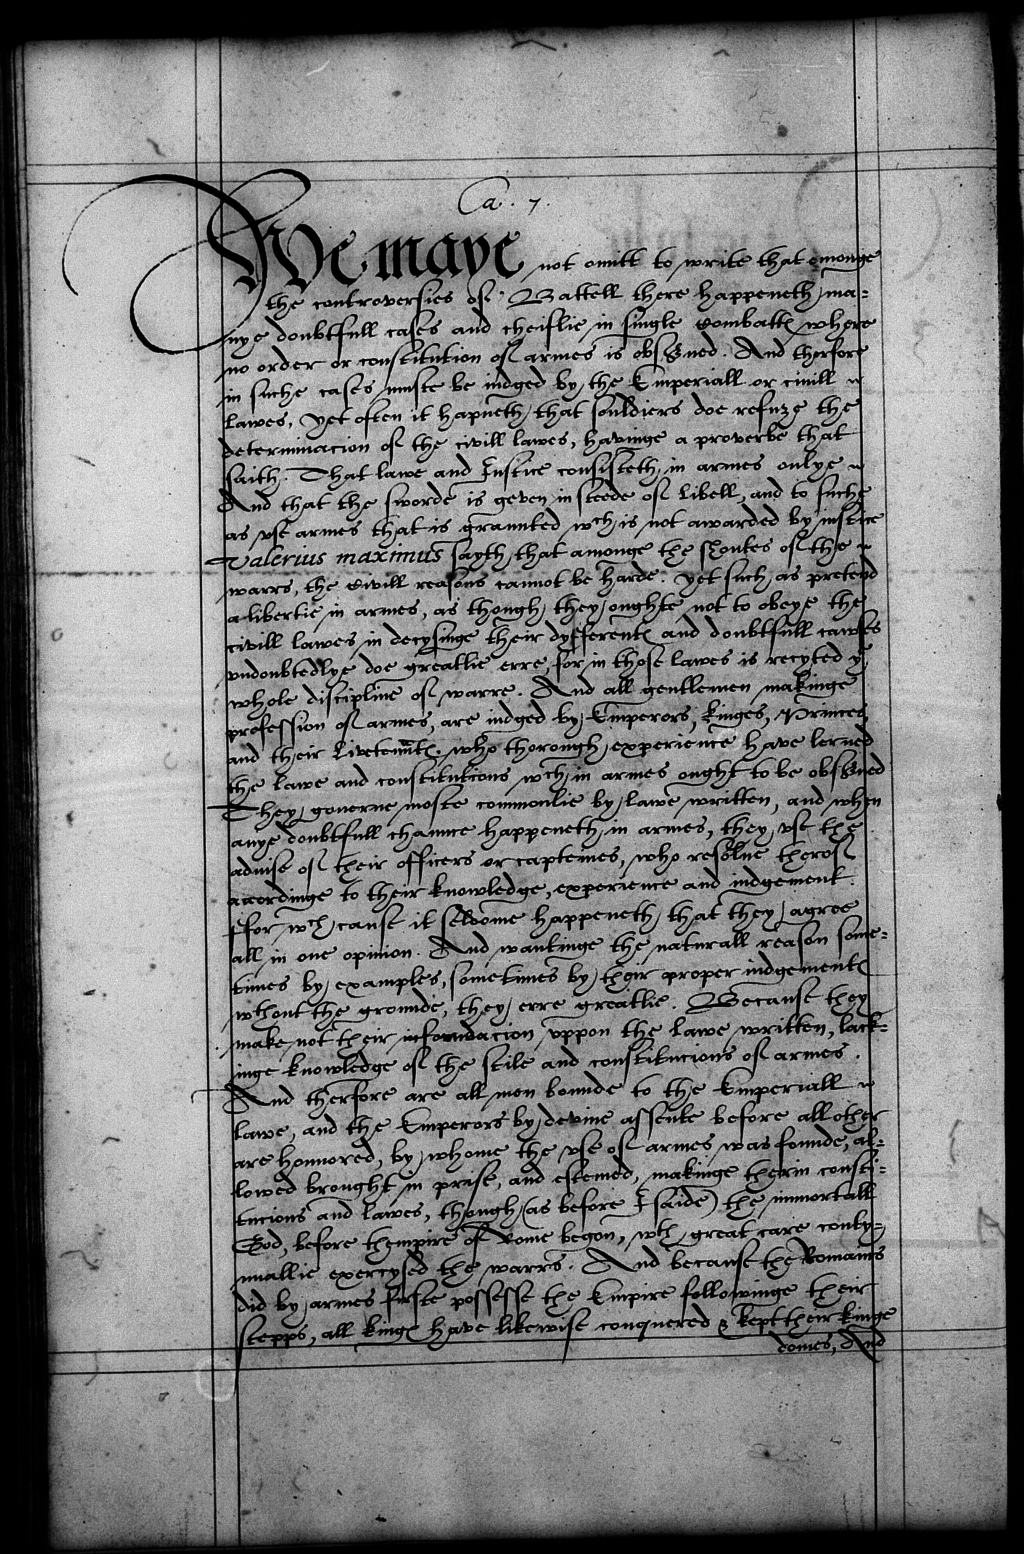 Ca. 7.
We maye not omitt to write that amonge
the controversies of Battell there happeneth ma-
nye doubtfull cases and cheiflie in single Combatte where
no order or constitution of armes is observed. And therfore
in suche cases muste be iudged by the Emperiall or civill
lawes, yet often it hapneth that souldiers doe refuze the
determinacion of the civill lawes, havinge a proverbe that
saith. That lawe and Iustice consisteth in armes onlye
And that the sworde is geven in steede of Libell, and to suche
as vse armes that is graunted wch is not awarded by iustice
Valerius maximus sayth that amonge the shoutes of the
warrs, the Civill reasons cannot be harde. yet such as pretend
a libertie in armes, as though they oughte not to obeye the
civill lawes in decysinge their dyfferente and doubtfull cawses
vndoubtedlye doe greatlie erre, for in those lawes is recyted ye
whole discipline of warre. And all gentlemen makinge
profession of armes, are iudged by Emperors, kinges, Princes
and their Livetennte. who thorough experience have lerned
the lawe and constitutions wch in armes ought to be observed
They governe moste commonlie by lawe written, and when
anye doubtfull chaunce happeneth in armes, they vse the
advise of their officers or captemes, who resolve therof
accordinge to their knowledge, experience and iudgement.
ffor wch cause it seldome happeneth that they agree
all in one opinion. And wantinge the naturall reason some-
times by examples, sometimes by their proper iudgemente
wthout the grounde, they erre greatlie. Because they
make not their infoundacion vppon the lawe written, lack-
inge knowledge of the stile and constitucions of armes.
And therfore are all men bounde to the Emperiall
lawe, and the Emperors by devine assente before all other
are honnored, by whome the vse of armes was founde, al-
lowed brought in prise, and estemed, makinge therin consti-
tucions and lawes, though (as before I saide) the immortall
God, before thempire of Rome begon, wth great care conty-
nuallie exercysed the warrs. And because the Romains
did by armes firste possesse the Empire followinge their
stepps, all kinge have likewise conquered & kept their kinge
domes, And